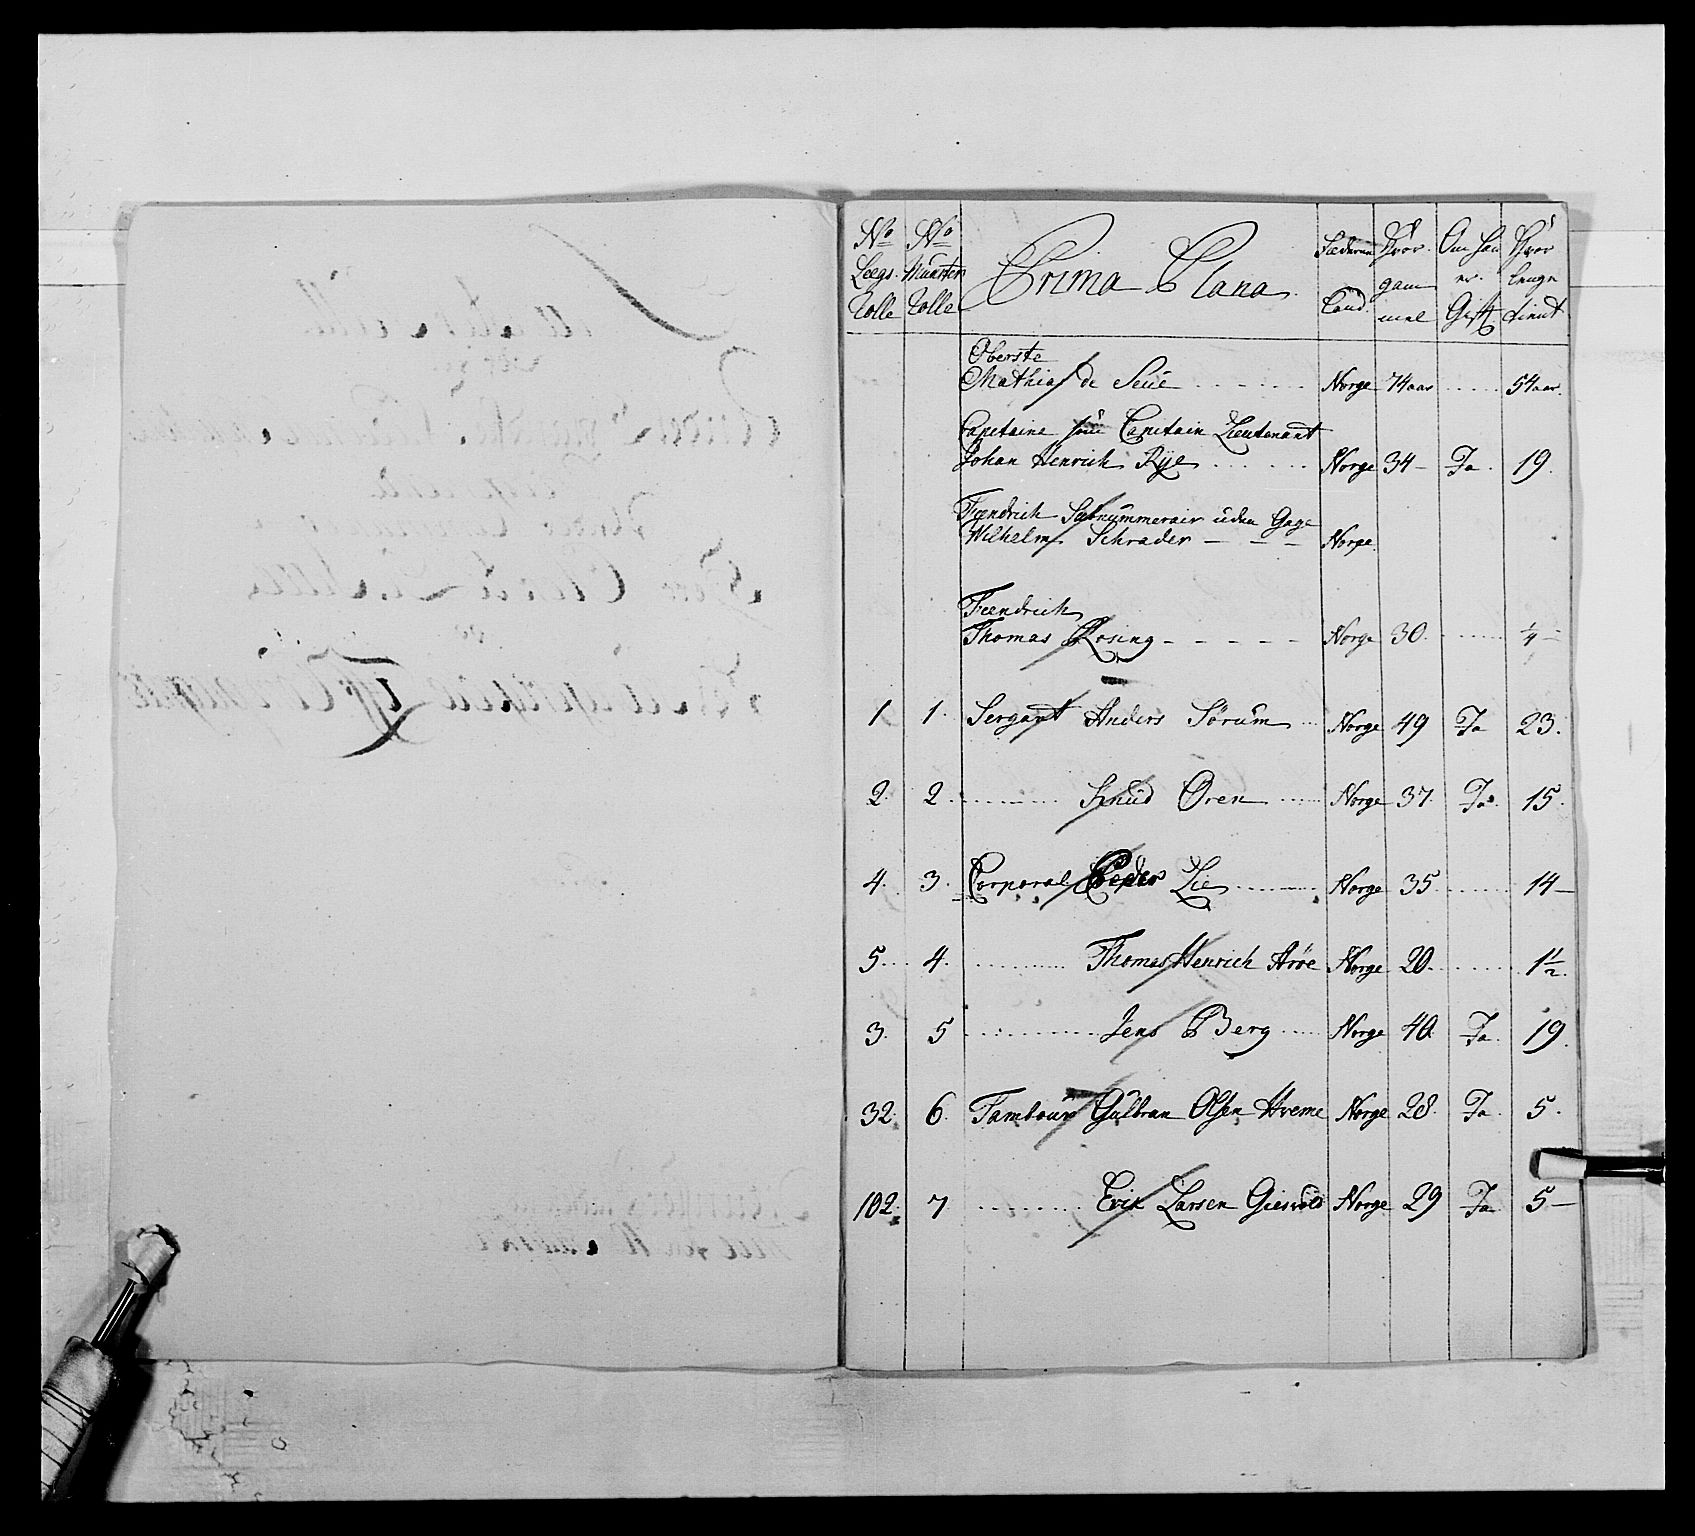 No Lægs Rolle | No Munster Rolle | Prima Plana | Fæderne Land | Hvor gammel | Om han er Gift | Hvor lenge tient
Oberste
Mathias de Seue - - - - Norge 74 aar - - - 54 aar.
Capitaine Capitain Lieutenant
Johan Henrich Rye - - - - Norge 34 - Ja. 19.
Fændrich uden Gage
Wilhelm Schrader - - - Norge.
Fændrich
Thomas Rosing - - - - - Norge 30. - - - 1/4 -
1 1. Sergant Anders Sørum - - Norge 49 Ja 23.
2. 2. - - - - Knud Øren - - - Norge 37. Ja. 15.
4. 3. Corporal Peder Lie - - - Norge 35 - - - 14 -
5. 4. - - - - Thomas Henrich Arøe Norge 20. - - - 1 1/2.
3. 5 - - - - Jens Berg - - - Norge 40. Ja. 19.
32. 6. Tambour Gulbran Olsen Hveme Norge 28. Ja. 5.
102. 7 - - - - Erik Larsen Giesvold Norge 29 Ja 5 -